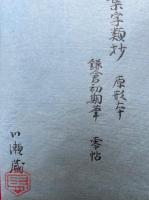 字類抄 原形本
鎌倉初期筆 零帖
川瀬蔵